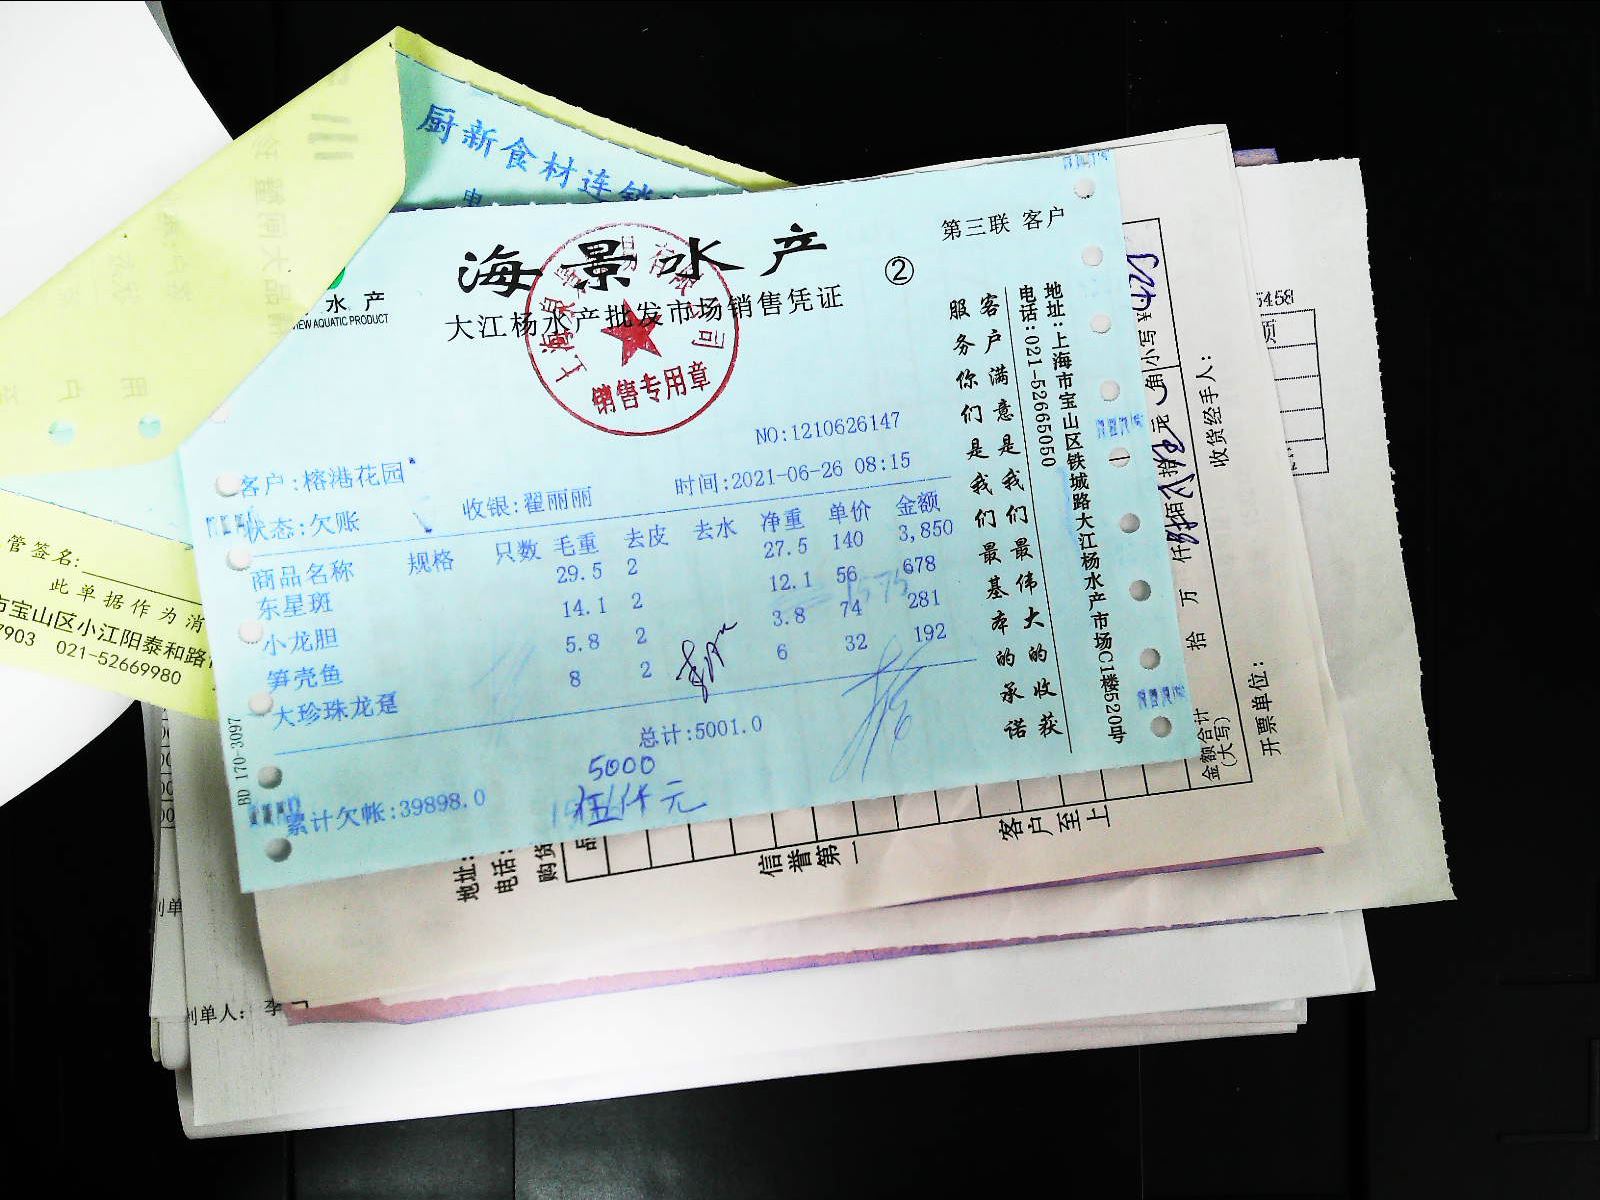 厨新食材连锁
第三联 客户
海景水产
②
水产
VIEW AQUATIC PRODUCT
大江杨水产批发市场销售凭证
销售专用章
NO:1210626147
客户:榕港花园
时间:2021-06-26 08:15
状态:欠账
收银:翟丽丽
商品名称 规格 只数 毛重 去皮 去水 净重 单价 金额
东星斑 29.5 2 27.5 140 3,850
小龙胆 14.1 2 12.1 56 678
笋壳鱼 5.8 2 3.8 74 281
大珍珠龙趸 8 2 6 32 192
总计:5001.0
5000
伍仟元
累计欠帐:39898.0
BD 170-3097
客户满意是我们最伟大的收获
服务你们是我们最基本的承诺
地址:上海市宝山区铁城路大江杨水产市场C1楼520号
电话:021-52665050
管签名:
此单据作为消
市宝山区小江阳泰和路
7903 021-52669980
地址:
电话:
购货
信誉第一
客户至上
金额合计
(大写)
拾 万 仟 佰 拾 元 角
小写¥
收货经手人:
开票单位:
5458
制单人: 李